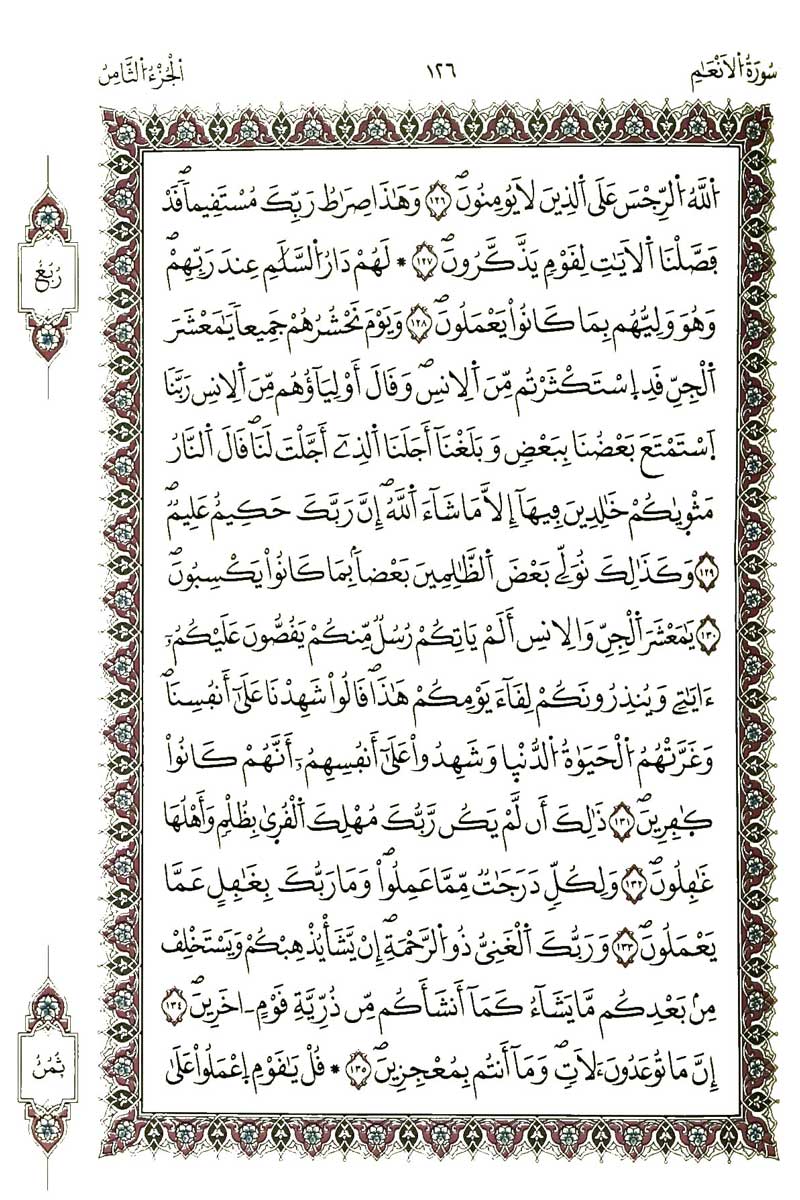 سُورَةُ الْأَنْعَامِ ١٢٦ الْجُزْءُ الثَّامِنُ
اَللَّهُ اُلرِّجْسَ عَلَى اَلذِينَ لَا يُومِنُونَۖ ١٢٦ وَهَٰذَا صِرَٰطُ رَبِّكَ مُسْتَقِيماٗۖ قَدْ
فَصَّلْنَا اَلْأٓيَٰتِ لِقَوْمٖ يَذَّكَّرُونَۖ ١٢٧ * لَهُمْ دَارُ اُلسَّلَٰمِ عِندَ رَبِّهِمْۖ
رُبُعٌ
وَهُوَ وَلِيُّهُم بِمَا كَانُواْ يَعْمَلُونَۖ ١٢٨ وَيَوْمَ نَحْشُرُهُمْ جَمِيعاٗ يَٰمَعْشَرَ
اَلْجِنِّ قَدِ اِسْتَكْثَرْتُم مِّنَ اَلِانسِۖ وَقَالَ أَوْلِيَآؤُهُم مِّنَ اَلِانسِ رَبَّنَا
اَ۪سْتَمْتَعَ بَعْضُنَا بِبَعْضٖ وَبَلَغْنَآ أَجَلَنَا اَلذِےٓ أَجَّلْتَ لَنَاۖ قَالَ اَلنَّارُ
مَثْوٜيٰكُمْ خَٰلِدِينَ فِيهَآ إِلَّا مَا شَآءَ اَللَّهُۖ إِنَّ رَبَّكَ حَكِيمٌ عَلِيمٞۖ
١٢٩ وَكَذَٰلِكَ نُوَلِّے بَعْضَ اَلظَّٰلِمِينَ بَعْضاَۢ بِمَا كَانُواْ يَكْسِبُونَۖ
١٣٠ يَٰمَعْشَرَ اَلْجِنِّ وَالِانسِ أَلَمْ يَاتِكُمْ رُسُلٞ مِّنكُمْ يَقُصُّونَ عَلَيْكُمُۥٓ
ءَايَٰتِے وَيُنذِرُونَكُمْ لِقَآءَ يَوْمِكُمْ هَٰذَاۖ قَالُواْ شَهِدْنَا عَلَىٰٓ أَنفُسِنَاۖ
وَغَرَّتْهُمُ اُلْحَيَوٰةُ اُلدُّنْي۪ا وَشَهِدُواْ عَلَىٰٓ أَنفُسِهِمُۥٓ أَنَّهُمْ كَانُواْ
كٰ۪فِرِينَۖ ١٣١ ذَٰلِكَ أَن لَّمْ يَكُن رَّبُّكَ مُهْلِكَ اَلْقُر۪ىٰ بِظُلْمٖ وَأَهْلُهَا
غَٰفِلُونَۖ ١٣٢ وَلِكُلّٖ دَرَجَٰتٞ مِّمَّا عَمِلُواْۖ وَمَا رَبُّكَ بِغَٰفِلٍ عَمَّا
يَعْمَلُونَۖ ١٣٣ وَرَبُّكَ اَلْغَنِيُّ ذُو اُلرَّحْمَةِۖ إِنْ يَّشَأْ يُذْهِبْكُمْ وَيَسْتَخْلِفْ
مِنۢ بَعْدِكُم مَّا يَشَآءُ كَمَآ أَنشَأَكُم مِّن ذُرِّيَّةِ قَوْمٍ ـ اخَرِينَۖ ١٣٤
إِنَّ مَا تُوعَدُونَ ءَلَاتٖۖ وَمَآ أَنتُم بِمُعْجِزِينَۖ ١٣٥ * قُلْ يَٰقَوْمِ اِعْمَلُواْ عَلَىٰ
ثُمُنٌ